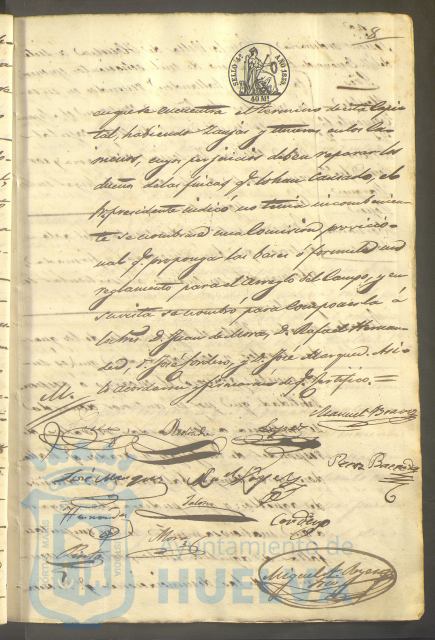 8
SELLO 4º AÑO 1858
40 Ms.
en que se encuentra el termino de esta Capi-
tal, habiendo zanjas y en los ca-
minos, cuyos perjuicios deben reparar los
dueños de las fincas q. lo han causado, el
Sr presidente indicó no tenia inconvenien-
te se nombrara una Comision provicio-
nal q. proponga las bases ó formule un
reglamento para el arreglo del Campo, y en
su vista se nombró para componerla á
los Sres. D. Juan de Mora, D. Rafael Hernan-
dez, D. José Cordero, y D. José Marquez. Asi
lo acordaron y firmaron de q. certifico. =
M.
Manuel Bravo
Lopez
Perez Barreda
José Marquez
R. Lopez
Hernandez
Mora
Cordero
Miguel
Ayuntamiento de
HUELVA